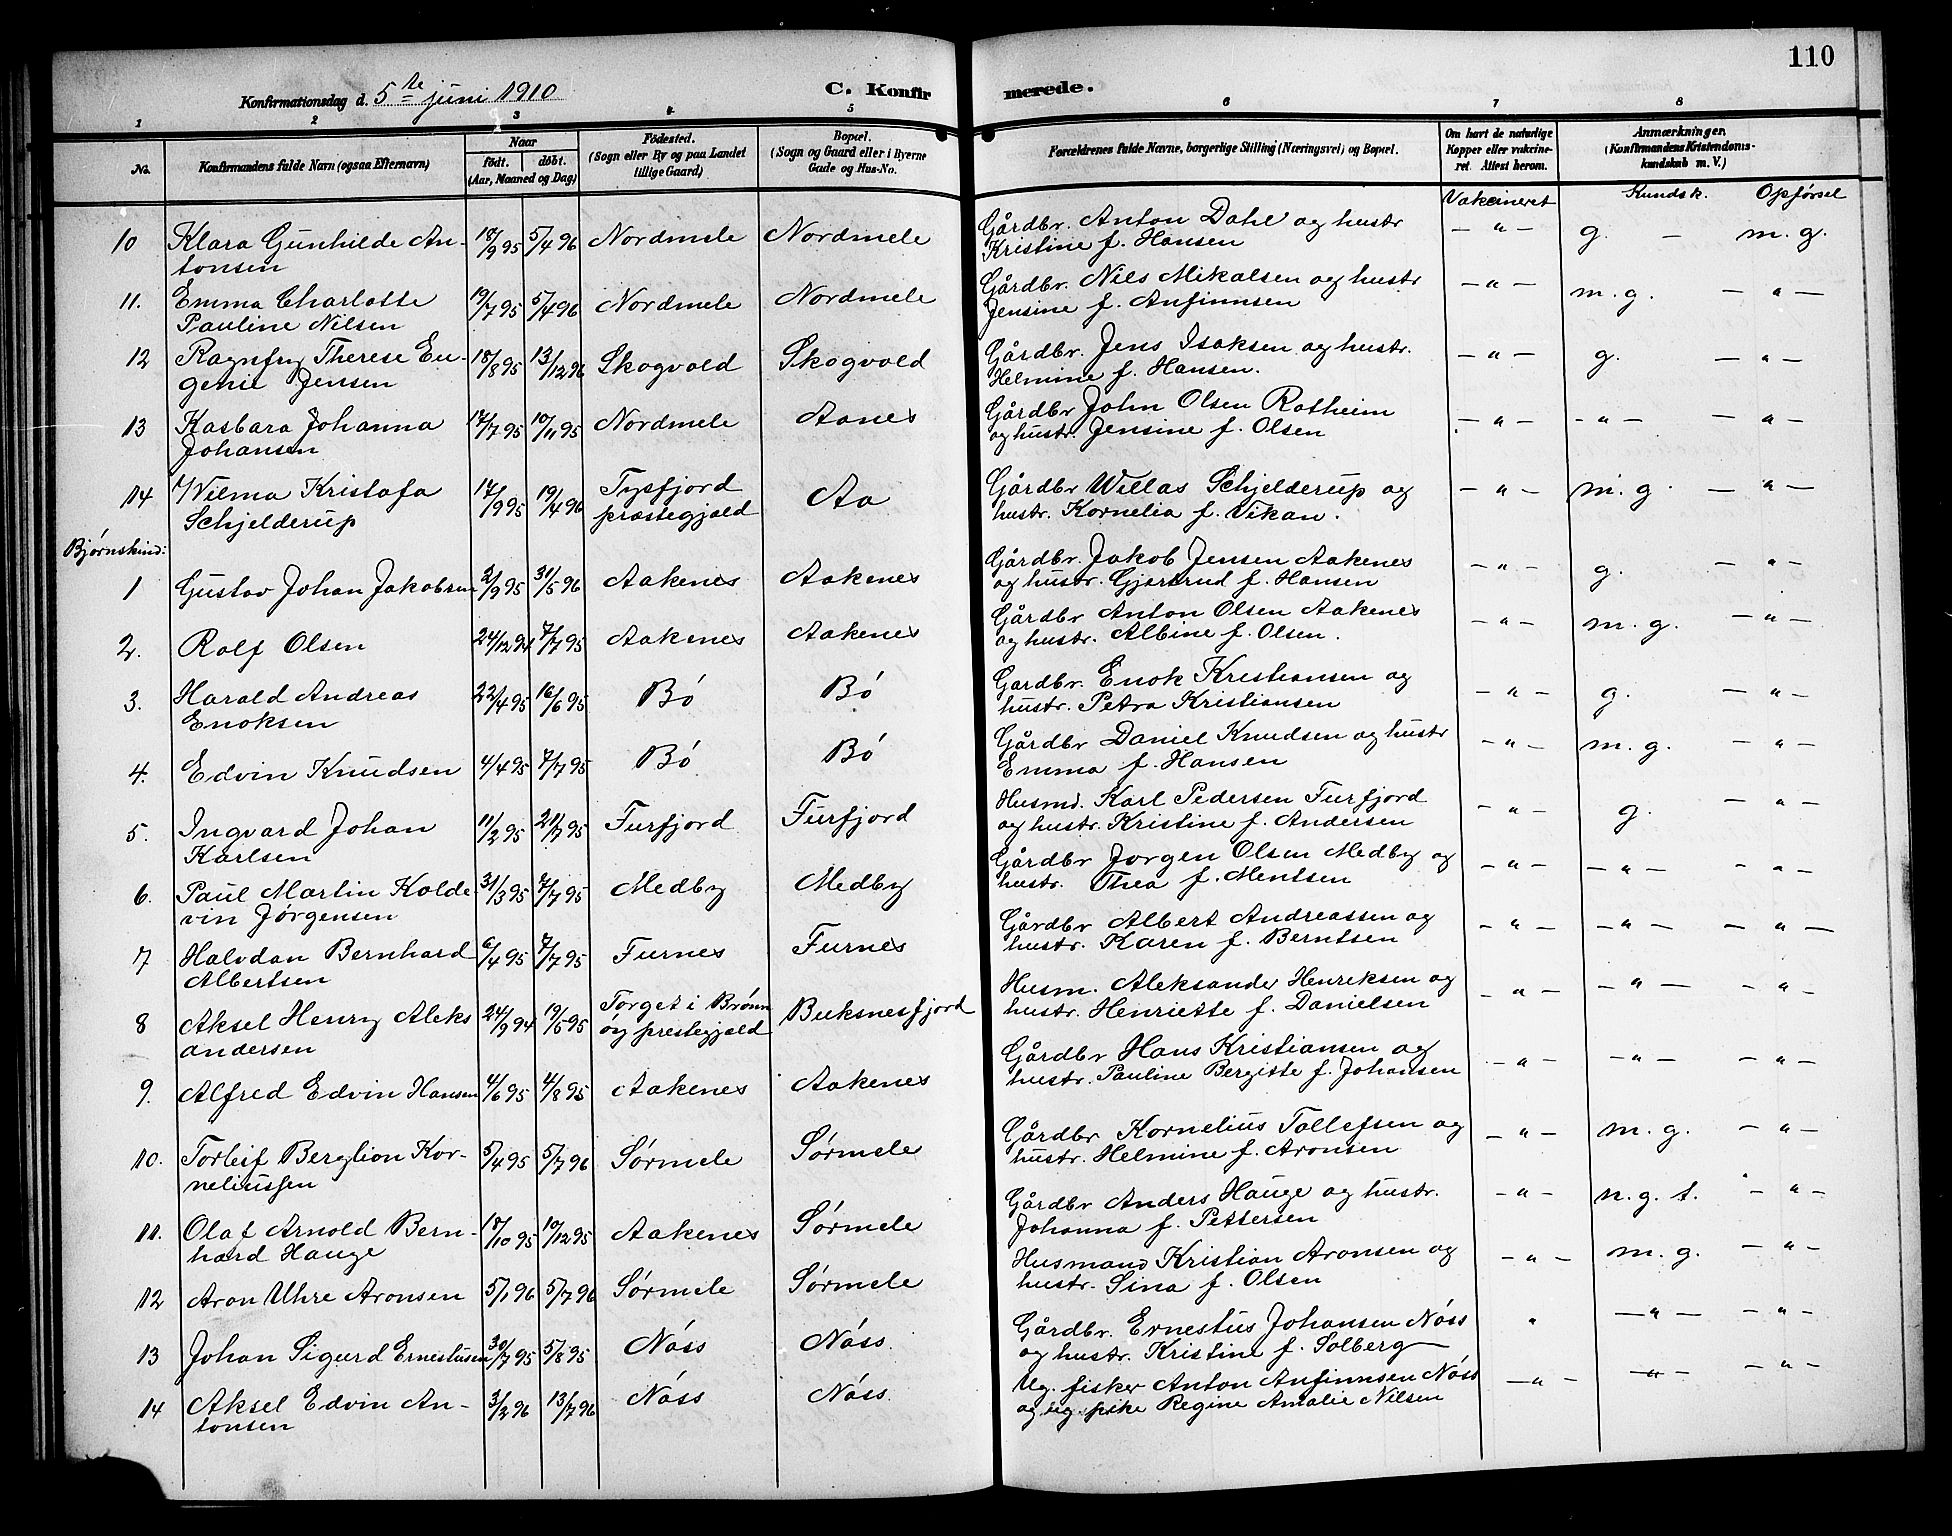 110
Konfirmationsdag d. 5te juni 1910
C. Konfirmerede.
1 2 3 4 5 6 7 8
No.
Konfirmandens fulde Navn (ogsaa Efternavn)
Naar
født. døbt.
(Aar, Maaned og Dag)
Fødested.
(Sogn eller By og paa Landet
tillige Gaard)
Bopæl.
(Sogn og Gaard eller i Byerne
Gade og Hus-No.
Forældrenes fulde Navne, borgerlige Stilling (Næringsvei) og Bopæl.
Om havt de naturlige
Kopper eller vakcine-
ret. Attest herom.
Anmærkninger.
(Konfirmandens Kristendoms-
kundskab m. V.)
Vakcineret Kundsk. Opførsel
10 Klara Gunhilde An- 18/9 95 5/4 96 Nordmele Nordmele Gårdbr. Anton Dahl og hustr – " – g. – m. g.
tonsen Kristine f. Hansen
11. Emma Charlotte 19/7 95 5/4 96 Nordmele Nordmele Gårdbr. Nils Mikalsen og hustr – " – m. g. – " –
Pauline Nilsen Jensine f. Anfinnsen
12 Ragnfry Therese Eu- 18/8 95 13/12 96 Skogvold Skogvold Gårdbr. Jens Isaksen og hustr. – " – g. – " –
genie Jensen Helmine f. Hansen.
13 Kasbara Johanna 17/7 95 10/11 95 Nordmele Aanes Gårdbr John Olsen Rotheim – " – – " – – " –
Johansen og hustr. Jensine f. Olsen
14 Wilma Kristofa 17/9 95 19/4 96 Tysfjord Aa Gårdbr Willas Schjelderup og – " – m. g. – " –
Schjelderup præstegjæld hustr. Kornelia f. Vikan.
Bjørnskind:
1 Gustav Johan Jakobsen 2/9 95 31/5 96 Aakenes Aakenes Gårdbr. Jakob Jensen Aakenes – " – g. – " –
og hustr. Gjertrud f. Hansen
2. Rolf Olsen 24/12 94 7/7 95 Aakenes Aakenes Gårdbr Anton Olsen Aakenes – " – m. g. – " –
og hustr. Albine f. Olsen.
3. Harald Andreas 22/4 95 16/6 95 Bö Bö Gardbr. Enok Kristiansen og – " – g. – " –
Enoksen hustr. Petra Kristiansen
4. Edvin Knudsen 4/4 95 7/7 95 Bö Bö Gårdbr Daniel Knudsen og hustr – " – m. g. – " –
Emma f. Hansen
5. Ingvard Johan 11/2 95 21/7 95 Furfjord Furfjord Husmd. Karl Pedersen Furfjord – " – g. – " –
Karlsen og hustr. Kristine f. Andersen
6. Paul Martin Kolde 31/3 95 7/7 95 Medby Medby Gårdbr Jorgen Olsen Medby og – " – – " – – " –
vin Jørgensen hustr. Thea f. Mentsen
7 Halvdan Bernhard 6/4 95 7/7 95 Furnes Furnes Gårdbr Albert Andreassen og – " – – " – – " –
Albertsen hustr. Karen f. Berntsen
8 Aksel Henry Aleks 24/9 94 19/5 95 Torget i Brønn Buksnesfjord Husm. Aleksander Henriksen og – " – – " – – " –
andersen øy prestegjæld hustr. Henriette f. Danielsen
9. Alfred Edvin Hansen 4/6 95 4/8 95 Aakenes Aakenes Gårdbr Hans Kristiansen og – " – – " – – " –
hustr. Pauline Bergitte f. Johansen
10. Torleif Berglion Kor- 5/4 95 5/7 96 Sørmele Sørmele Gårdbr Kornelius Tollefsen og – " – m. g. – " –
neliussen hustr. Helmine f. Aronsen
11. Olaf Arnold Bern- 18/10 95 10/12 95 Aakenes Sørmele Gårdbr Anders Hauge og hustr. – " – n. g. t. – " –
hard Hauge Johanna f. Pettersen
12 Aron Uhre Aronsen 5/1 96 5/7 96 Sørmele Sørmele Husmand Kristian Aronsen og – " – m. g. – " –
hustr. Sina f. Olsen
13 Johan Sigurd Ernestusen 30/7 95 5/8 95 Nöss Nöss. Gårdbr. Ernestus Johansen Nöss " – " – – " –
og hustr. Kristine f. Solberg
14 Aksel Edvin An- 3/2 96 13/7 96 Nöss Nöss. Ug. fisker Anton Anfinnsen Nöss – " – – " – – " –
tonsen og ug. pike Regine Amalie Nilsen